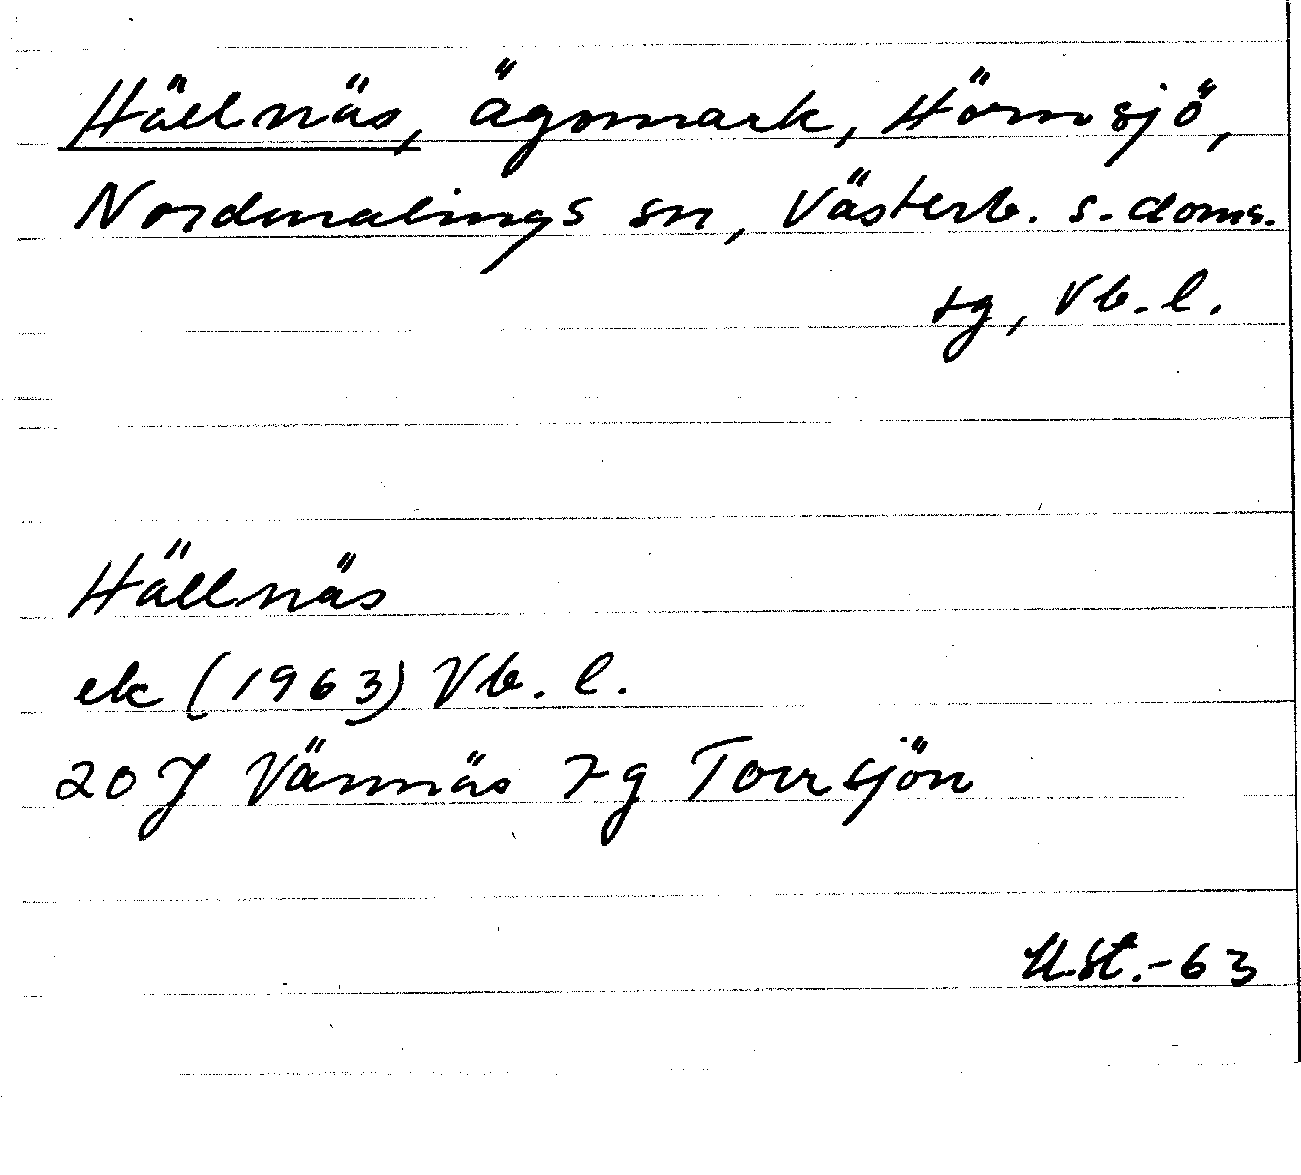 Hällnäs, ägomark, Hörnsjö,
Nordmalings sn, Västerb. s. doms.
sg, Vb. l.
Hällnäs
ek (1963) Vb. l.
20 J Vännäs 7 g Torrsjön
U.St.-63